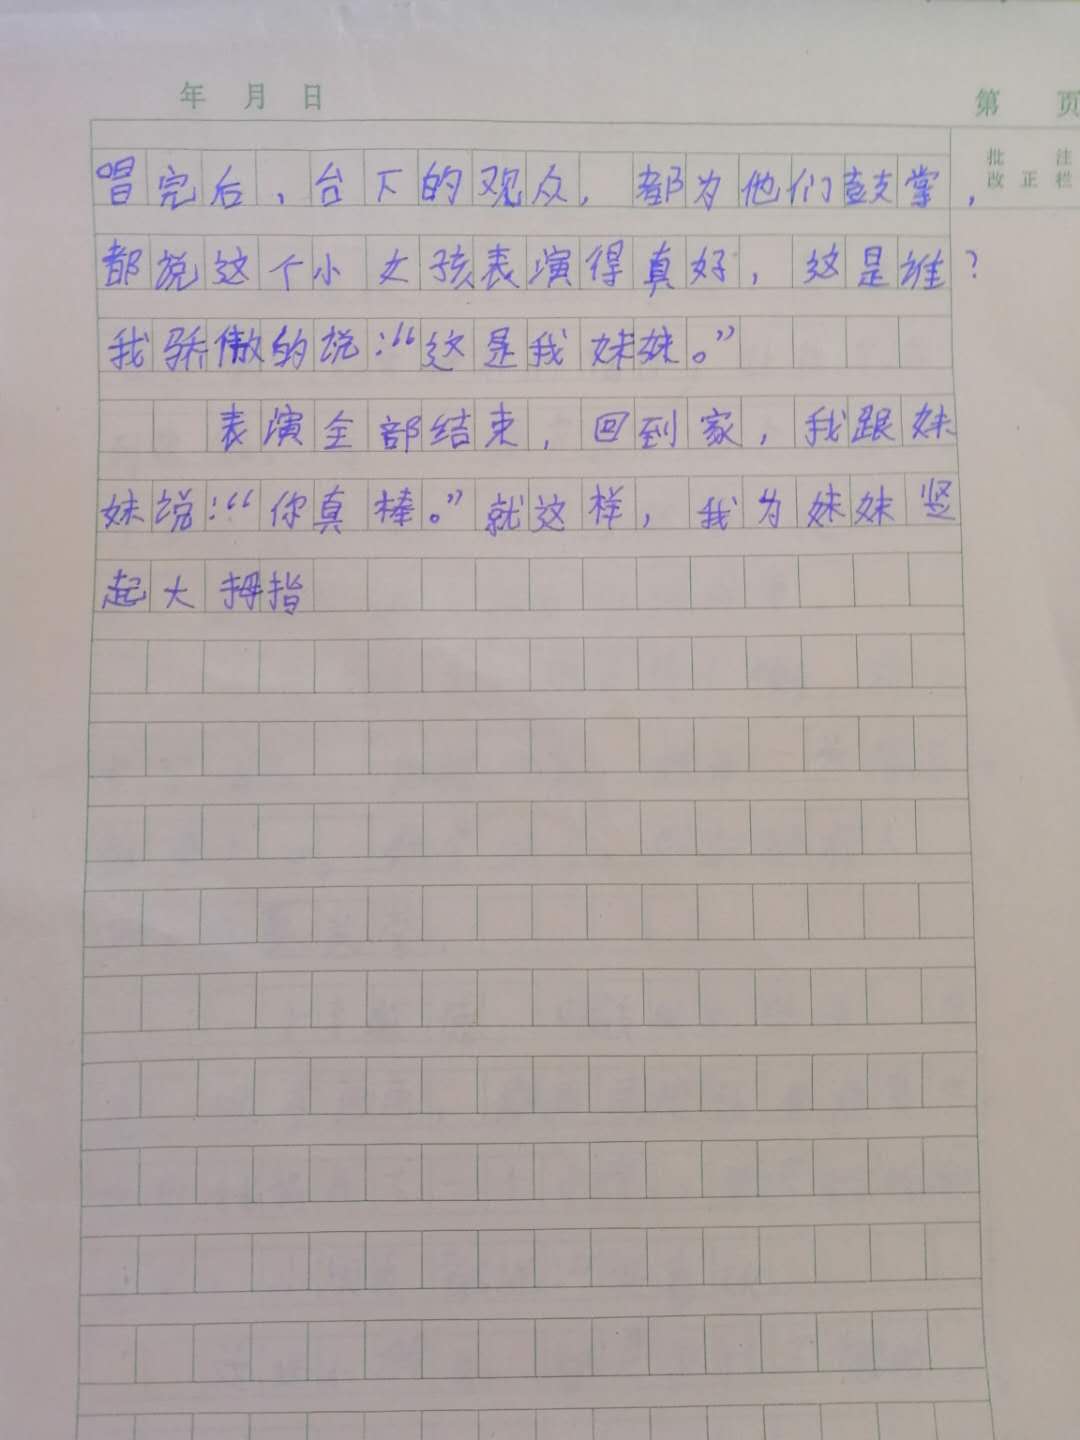 年 月 日
第 页
批 注
改 正 栏
唱完后，台下的观众，都为他们鼓掌，
都说这个小女孩表演得真好，这是谁？
我骄傲的说：“这是我妹妹。”
表演全部结束，回到家，我跟妹
妹说：“你真棒。”就这样，我为妹妹竖
起大拇指